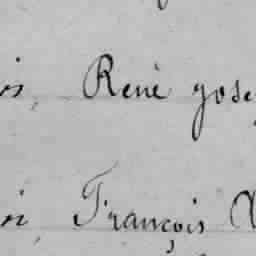 is, René Jose
is, François